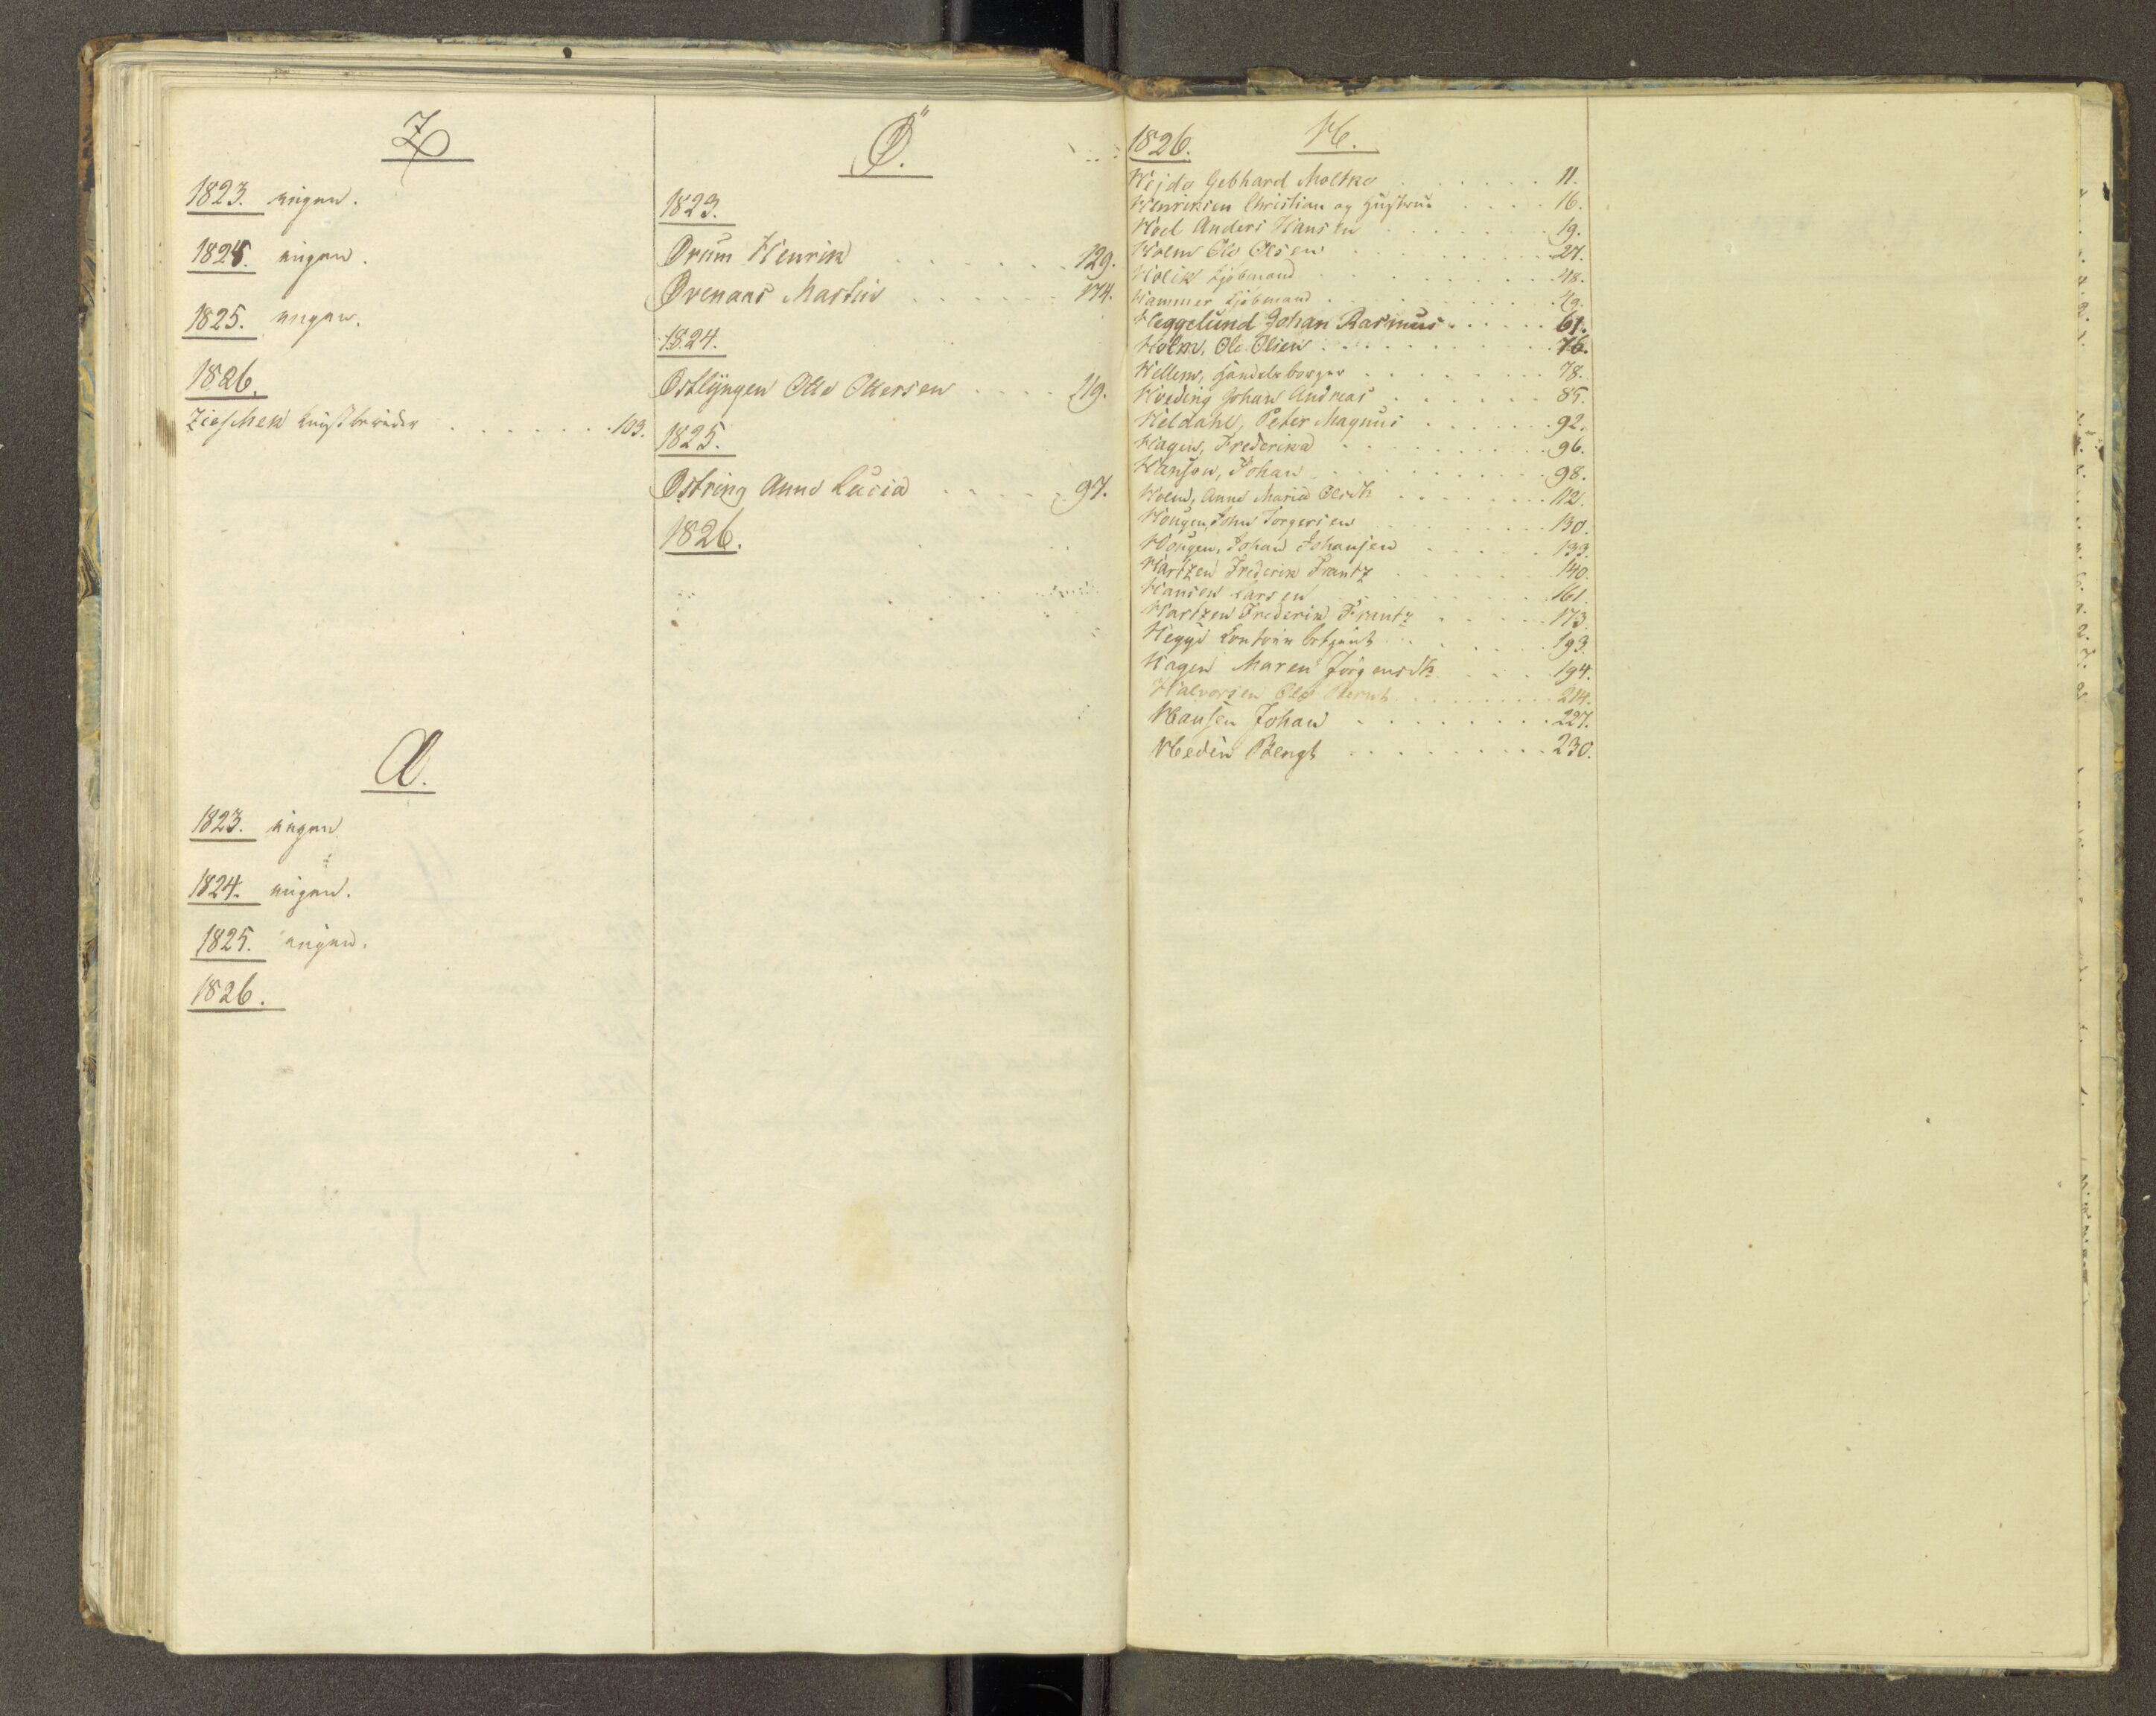 Z
1823. ingen.
1824. ingen.
1825. ingen.
1826.
Zieschek Kunstberider . . . . . . . 103.
Æ.
1823. ingen
1824. ingen.
1825. ingen.
1826.
Ø.
1823.
Ørum Henrik . . . . . . 129.
Ørenaas Martin . . . . . . 174.
1824.
Østlyngen Ole Olersen . . . . 119.
1825.
Østring Anne Lucia . . . . . 97.
1826.
1826. H.
Hejde Gebhard Moltke . . . . . . 11.
Henriksen Christian og Hustrue . . . . 16.
Hoel Anders Hansen . . . . . . 19.
Holm Ole Olsen . . . . . . . . 27.
Holik Kjöbmand . . . . . . . . 48.
Hammer Kjöbmand . . . . . . . . 49.
Heggelund Johan Rasmus . . . . . 61.
Holm, Ole Olsen . . . . . . . . . 76.
Hellem, Handelsborger . . . . . . . 78.
Hveding Johan Andreas . . . . . . 85.
Heldahl, Peter Magnus . . . . . . 92.
Hagen, Frederika . . . . . . . . 96.
Hansen, Johan . . . . . . . . . 98.
Holm, Anne Maria Olsdr . . . . . . 112.
Hougen, John Torgersen . . . . . . 130.
Hougen, Johan Johansen . . . . . 133.
Hartzen Frederik Frantz . . . . . . 140.
Hansen Larsen . . . . . . . . 161.
Hartzen Frederik Frantz . . . . . 173.
Hegge Contoir betjent . . . . . . 193.
Hagen Maren Jörgensdr . . . . 194.
Halvorsen Ole Bernt . . . . . . . 214.
Hansen Johan . . . . . . . . 227.
Hedin Bengt . . . . . . . . . 230.